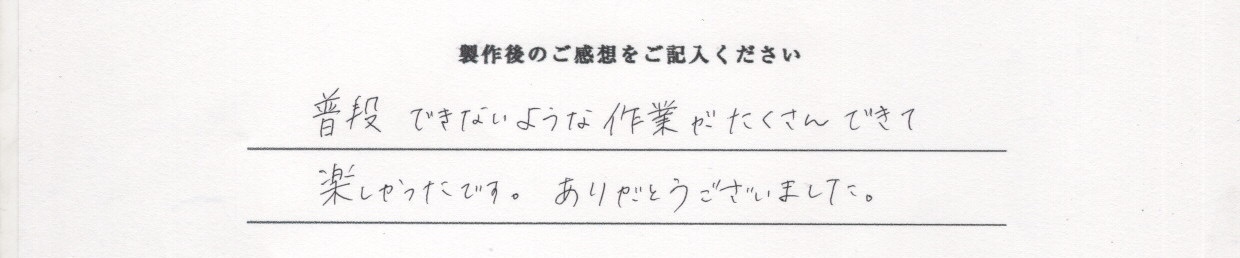 製作後のご感想をご記入ください
普段できないような作業がたくさんできて
楽しかったです。ありがとうございました。